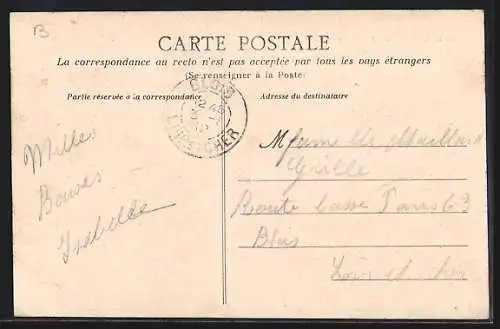 B
CARTE POSTALE
La correspondance au recto n'est pas acceptée par tous les pays étrangers
(Se renseigner à la Poste)
Partie réservée à la correspondance
Adresse du destinataire
BLOIS
12 45
LOIR-ET-CHER
Milles
Baises
Isabelle
Maillard
Grille
Route basse Paris 63
Blois
Loir et cher